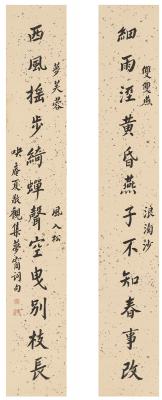 細雨溼黃昏燕子不知春事改
雙雙燕
浪淘沙
西風搖步綺蟬聲空曳別枝長
夢芙蓉
風入松
映庵夏敬觀集夢窗詞句